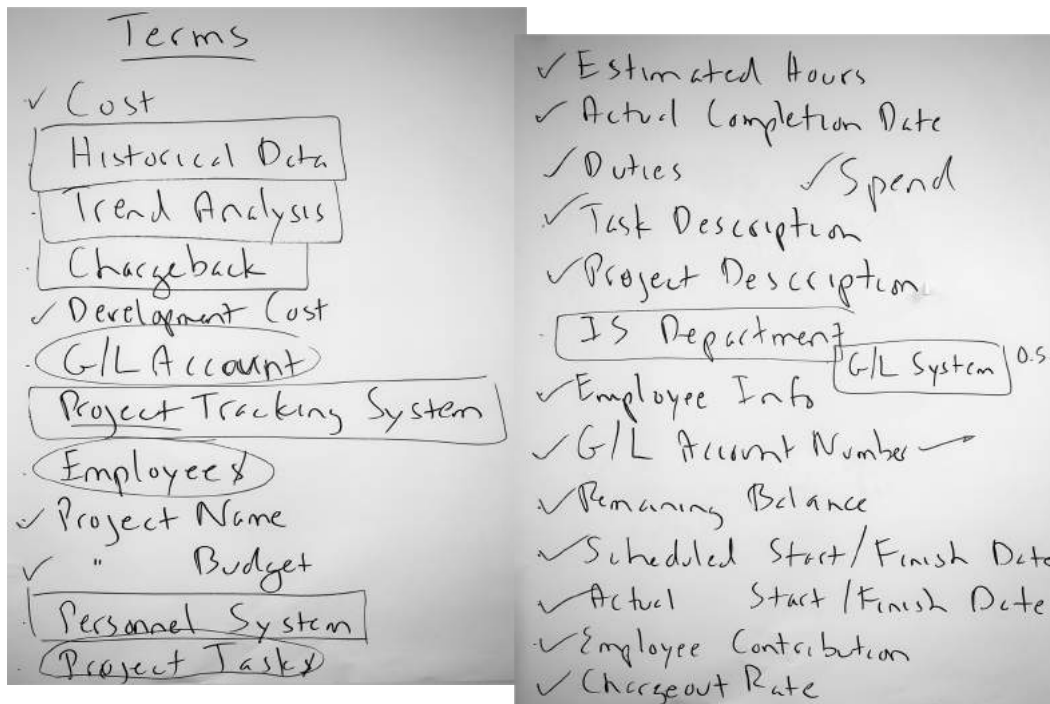 Terms
✓ Cost
Historical Data
Trend Analysis
Chargeback
✓ Development Cost
G/L Account
Project Tracking System
Employees
✓ Project Name
✓ " Budget
Personnel System
Project Tasks
✓ Estimated Hours
✓ Actual Completion Date
✓ Duties ✓ Spend
✓ Task Description
✓ Project Description
IS Department
G/L System 0.5
✓ Employee Info
✓ G/L Account Number
✓ Remaining Balance
✓ Scheduled Start/Finish Date
✓ Actual Start/Finish Date
✓ Employee Contribution
✓ Chargeout Rate